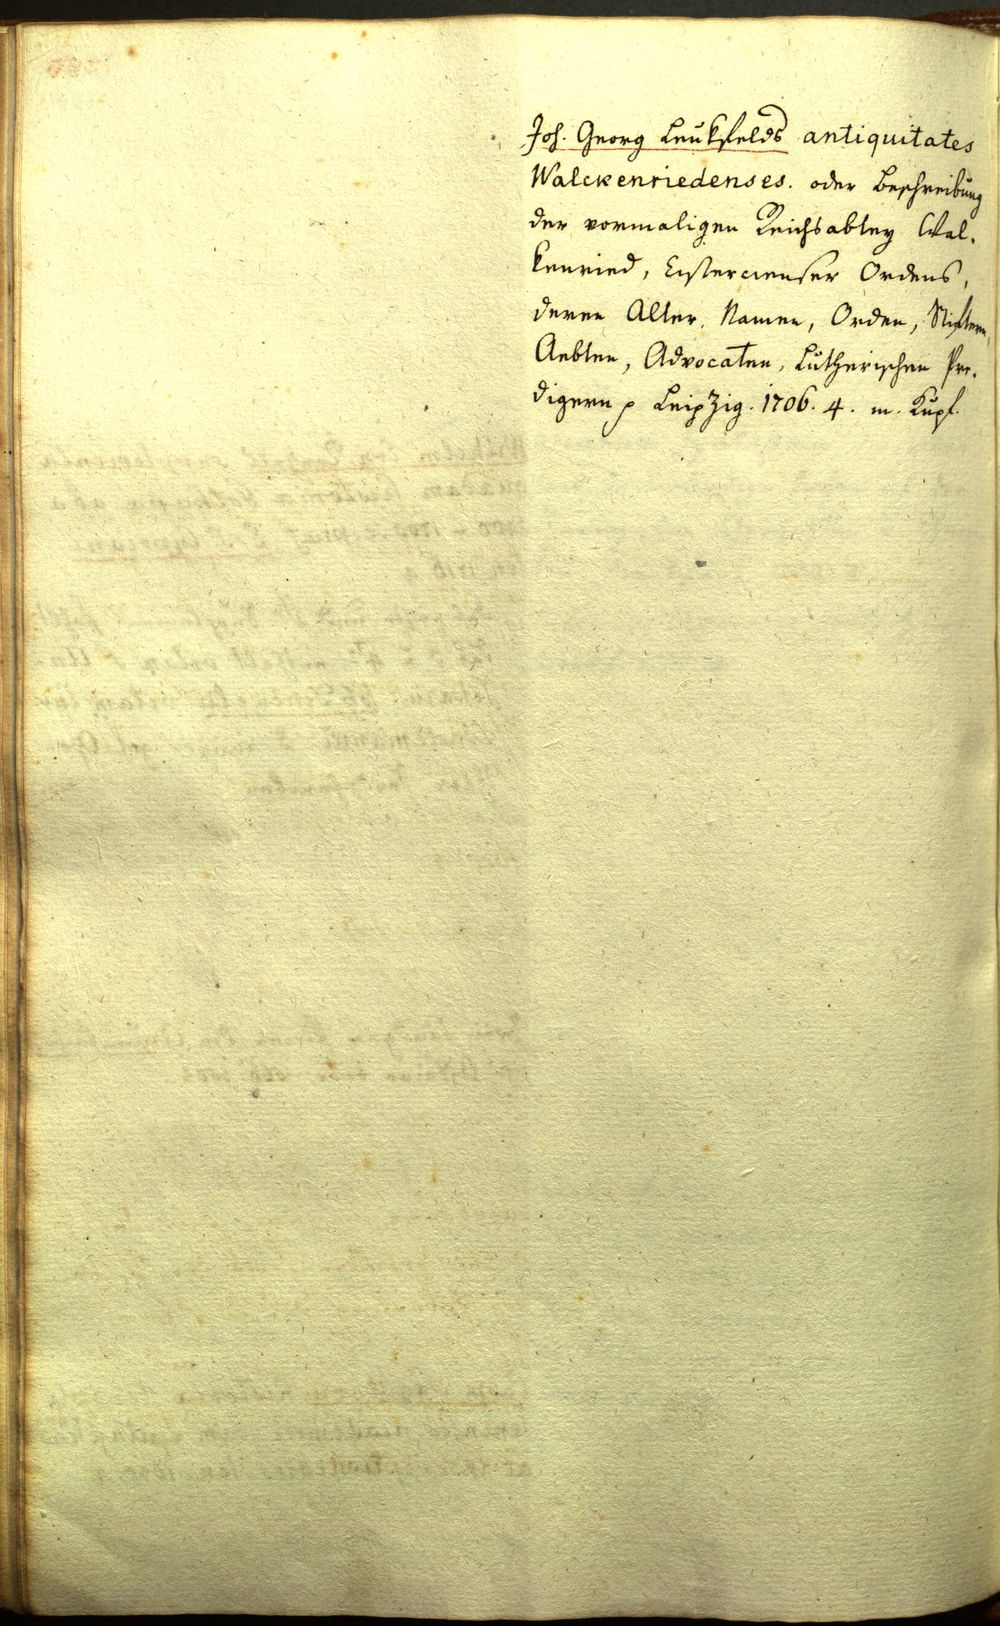 Joh. Georg Leukfelds antiquitates
Walckenriedenses. oder Beschreibung
der vormaligen Reichsabtey Wal-
kenried, Cistercienser Ordens,
deren Alter, Namen, Orden, Stiftern,
Aebten, Advocaten, Lutherischen Pre-
digern p Leipzig. 1706. 4. m. Kupf.